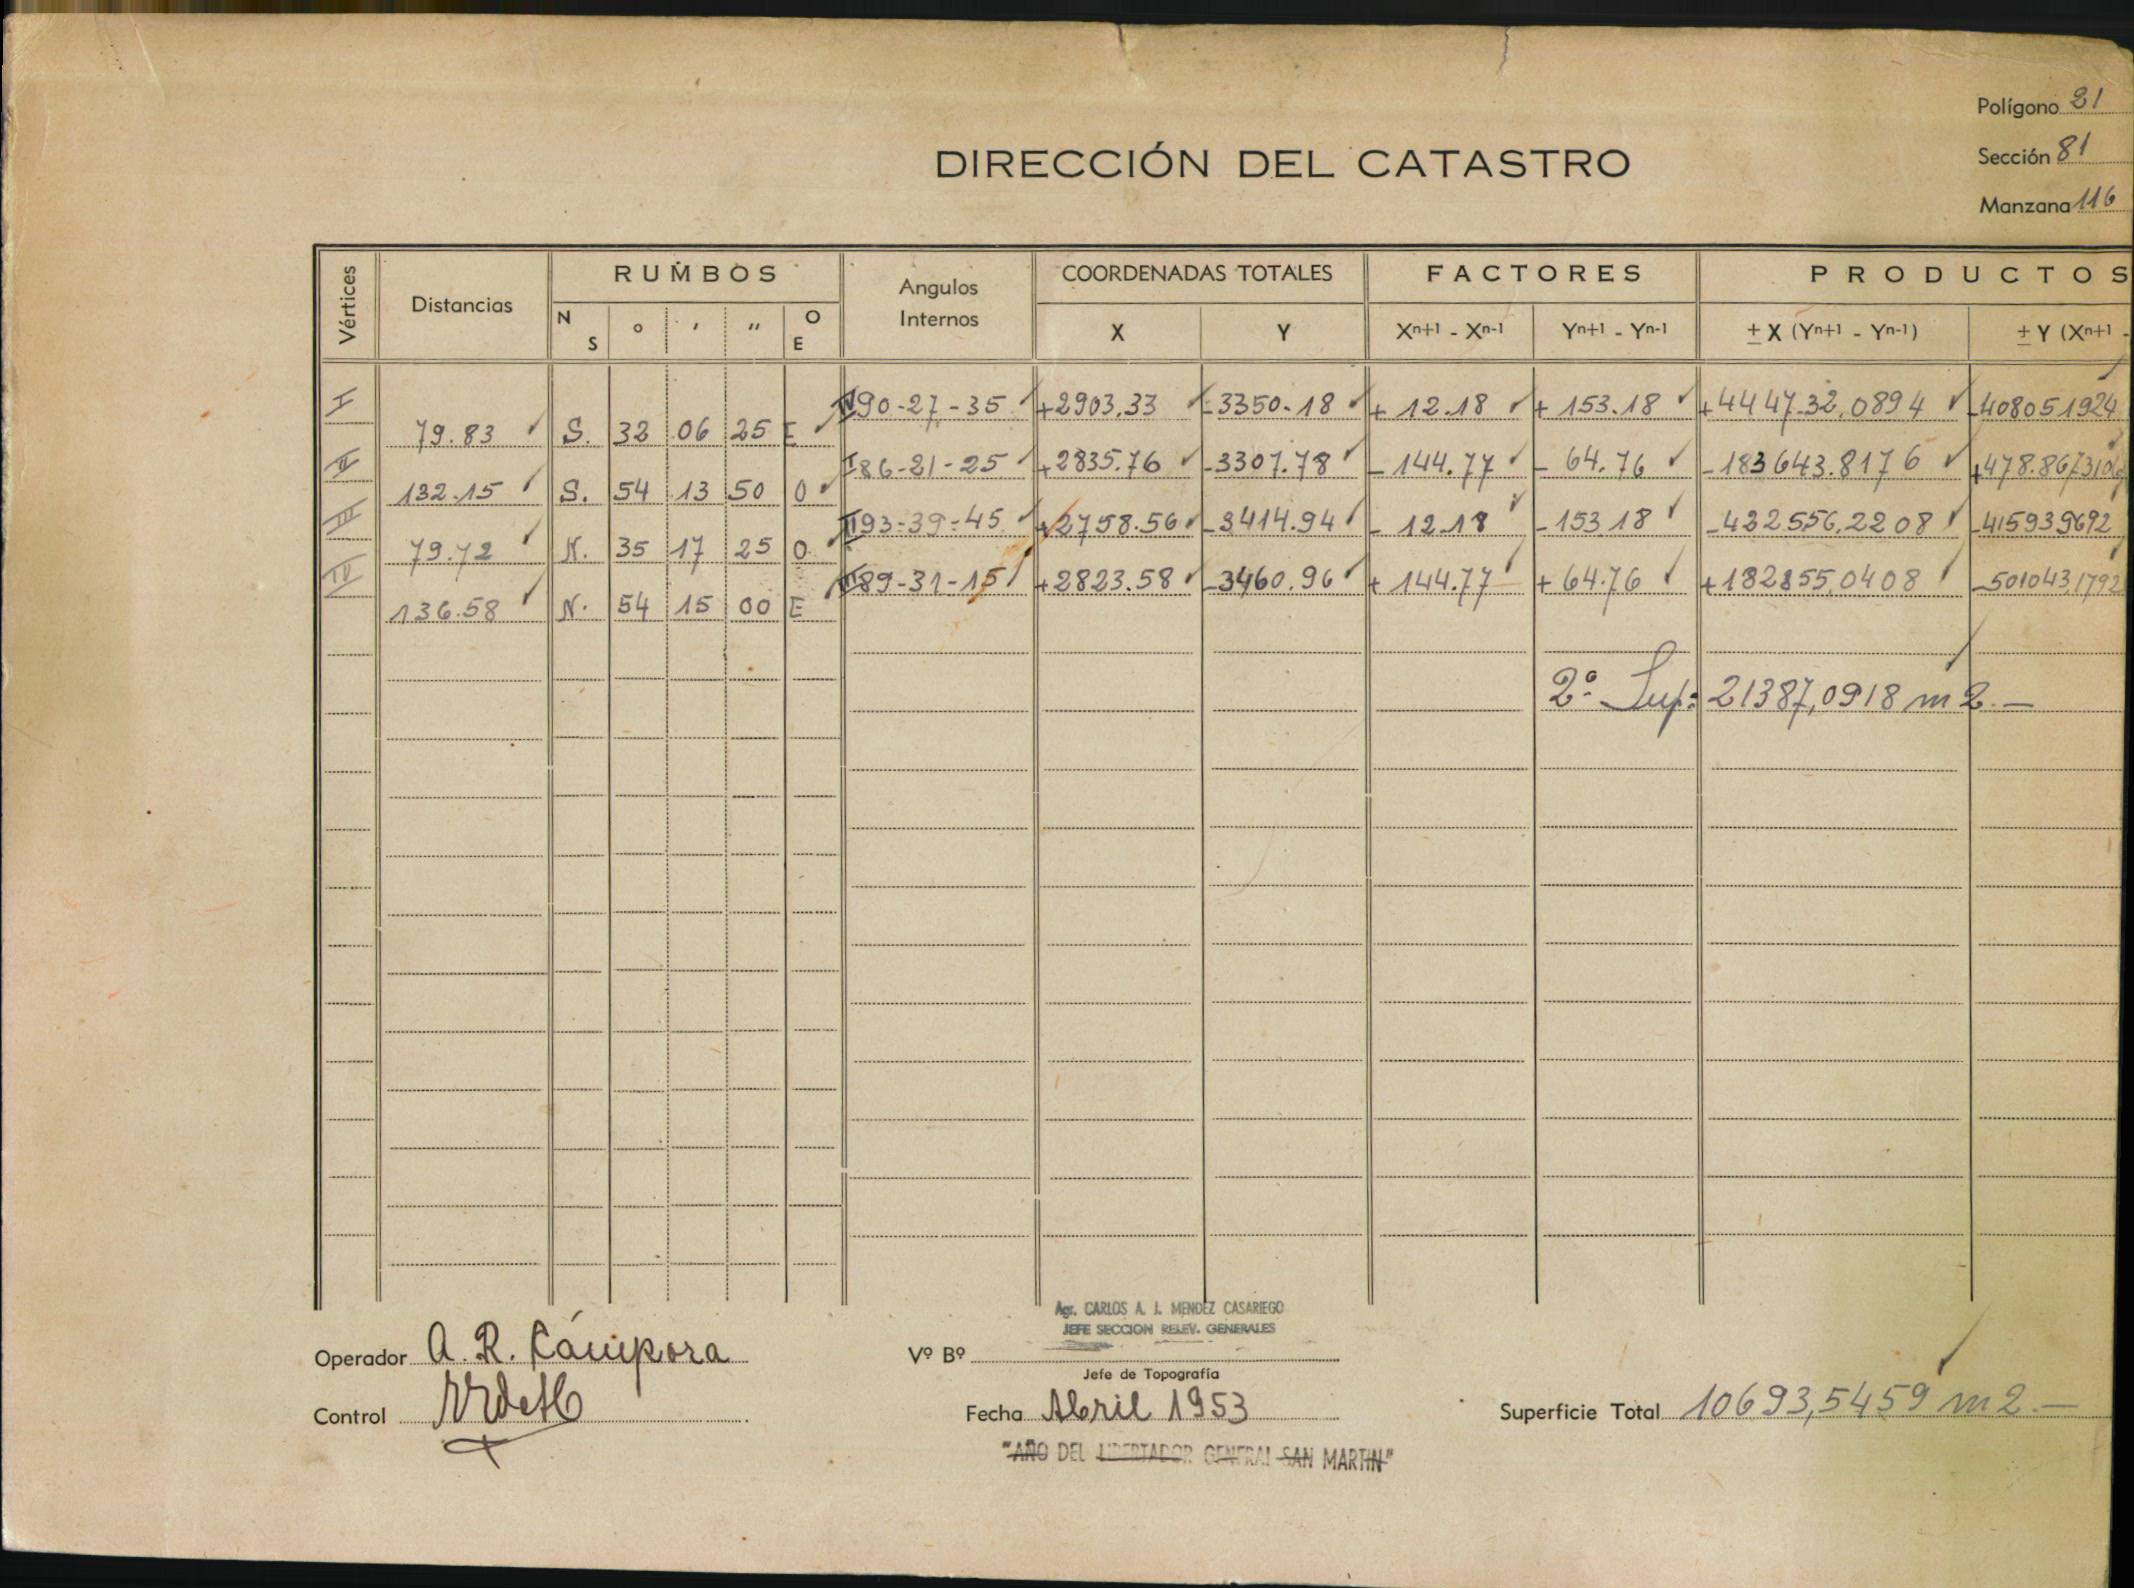 Polígono 21
DIRECCIÓN DEL CATASTRO
Sección 81
Manzana 116
Vértices Distancias RUMBOS Angulos Internos COORDENADAS TOTALES FACTORES PRODUCTOS
N S ° ' " O E X Y Xn+1 - Xn-1 Yn+1 - Yn-1 ± X (Yn+1 - Yn-1) ± Y (Xn+1 -
I IV 90-27-35 +2903.33 -3350.18 + 12.18 + 153.18 +444732,0894 -408051924
79.83 S. 32 06 25 E
II I 86-21-25 +2835.76 -3307.78 - 144.77 - 64.76 -183643.8176 +478.8673106
132.15 S. 54 13 50 O
III II 93-39-45 +2758.56 -3414.94 - 12.18 -153.18 -422556,2208 -415939692
79.72 N. 35 17 25 O
IV III 89-31-15 +2823.58 -3460.96 + 144.77 + 64.76 +182855,0408 -501043,1792
136.58 N. 54 15 00 E
2ª Sup: 21387,0918 m2.—
Agr. CARLOS A. J. MENDEZ CASARIEGO
JEFE SECCION RELEV. GENERALES
Operador A. R. Cámpora
Vº Bº
Jefe de Topografía
Control
Fecha Abril 1953
Superficie Total 10693,5459 m2.—
"AÑO DEL LIBERTADOR GENERAL SAN MARTIN"